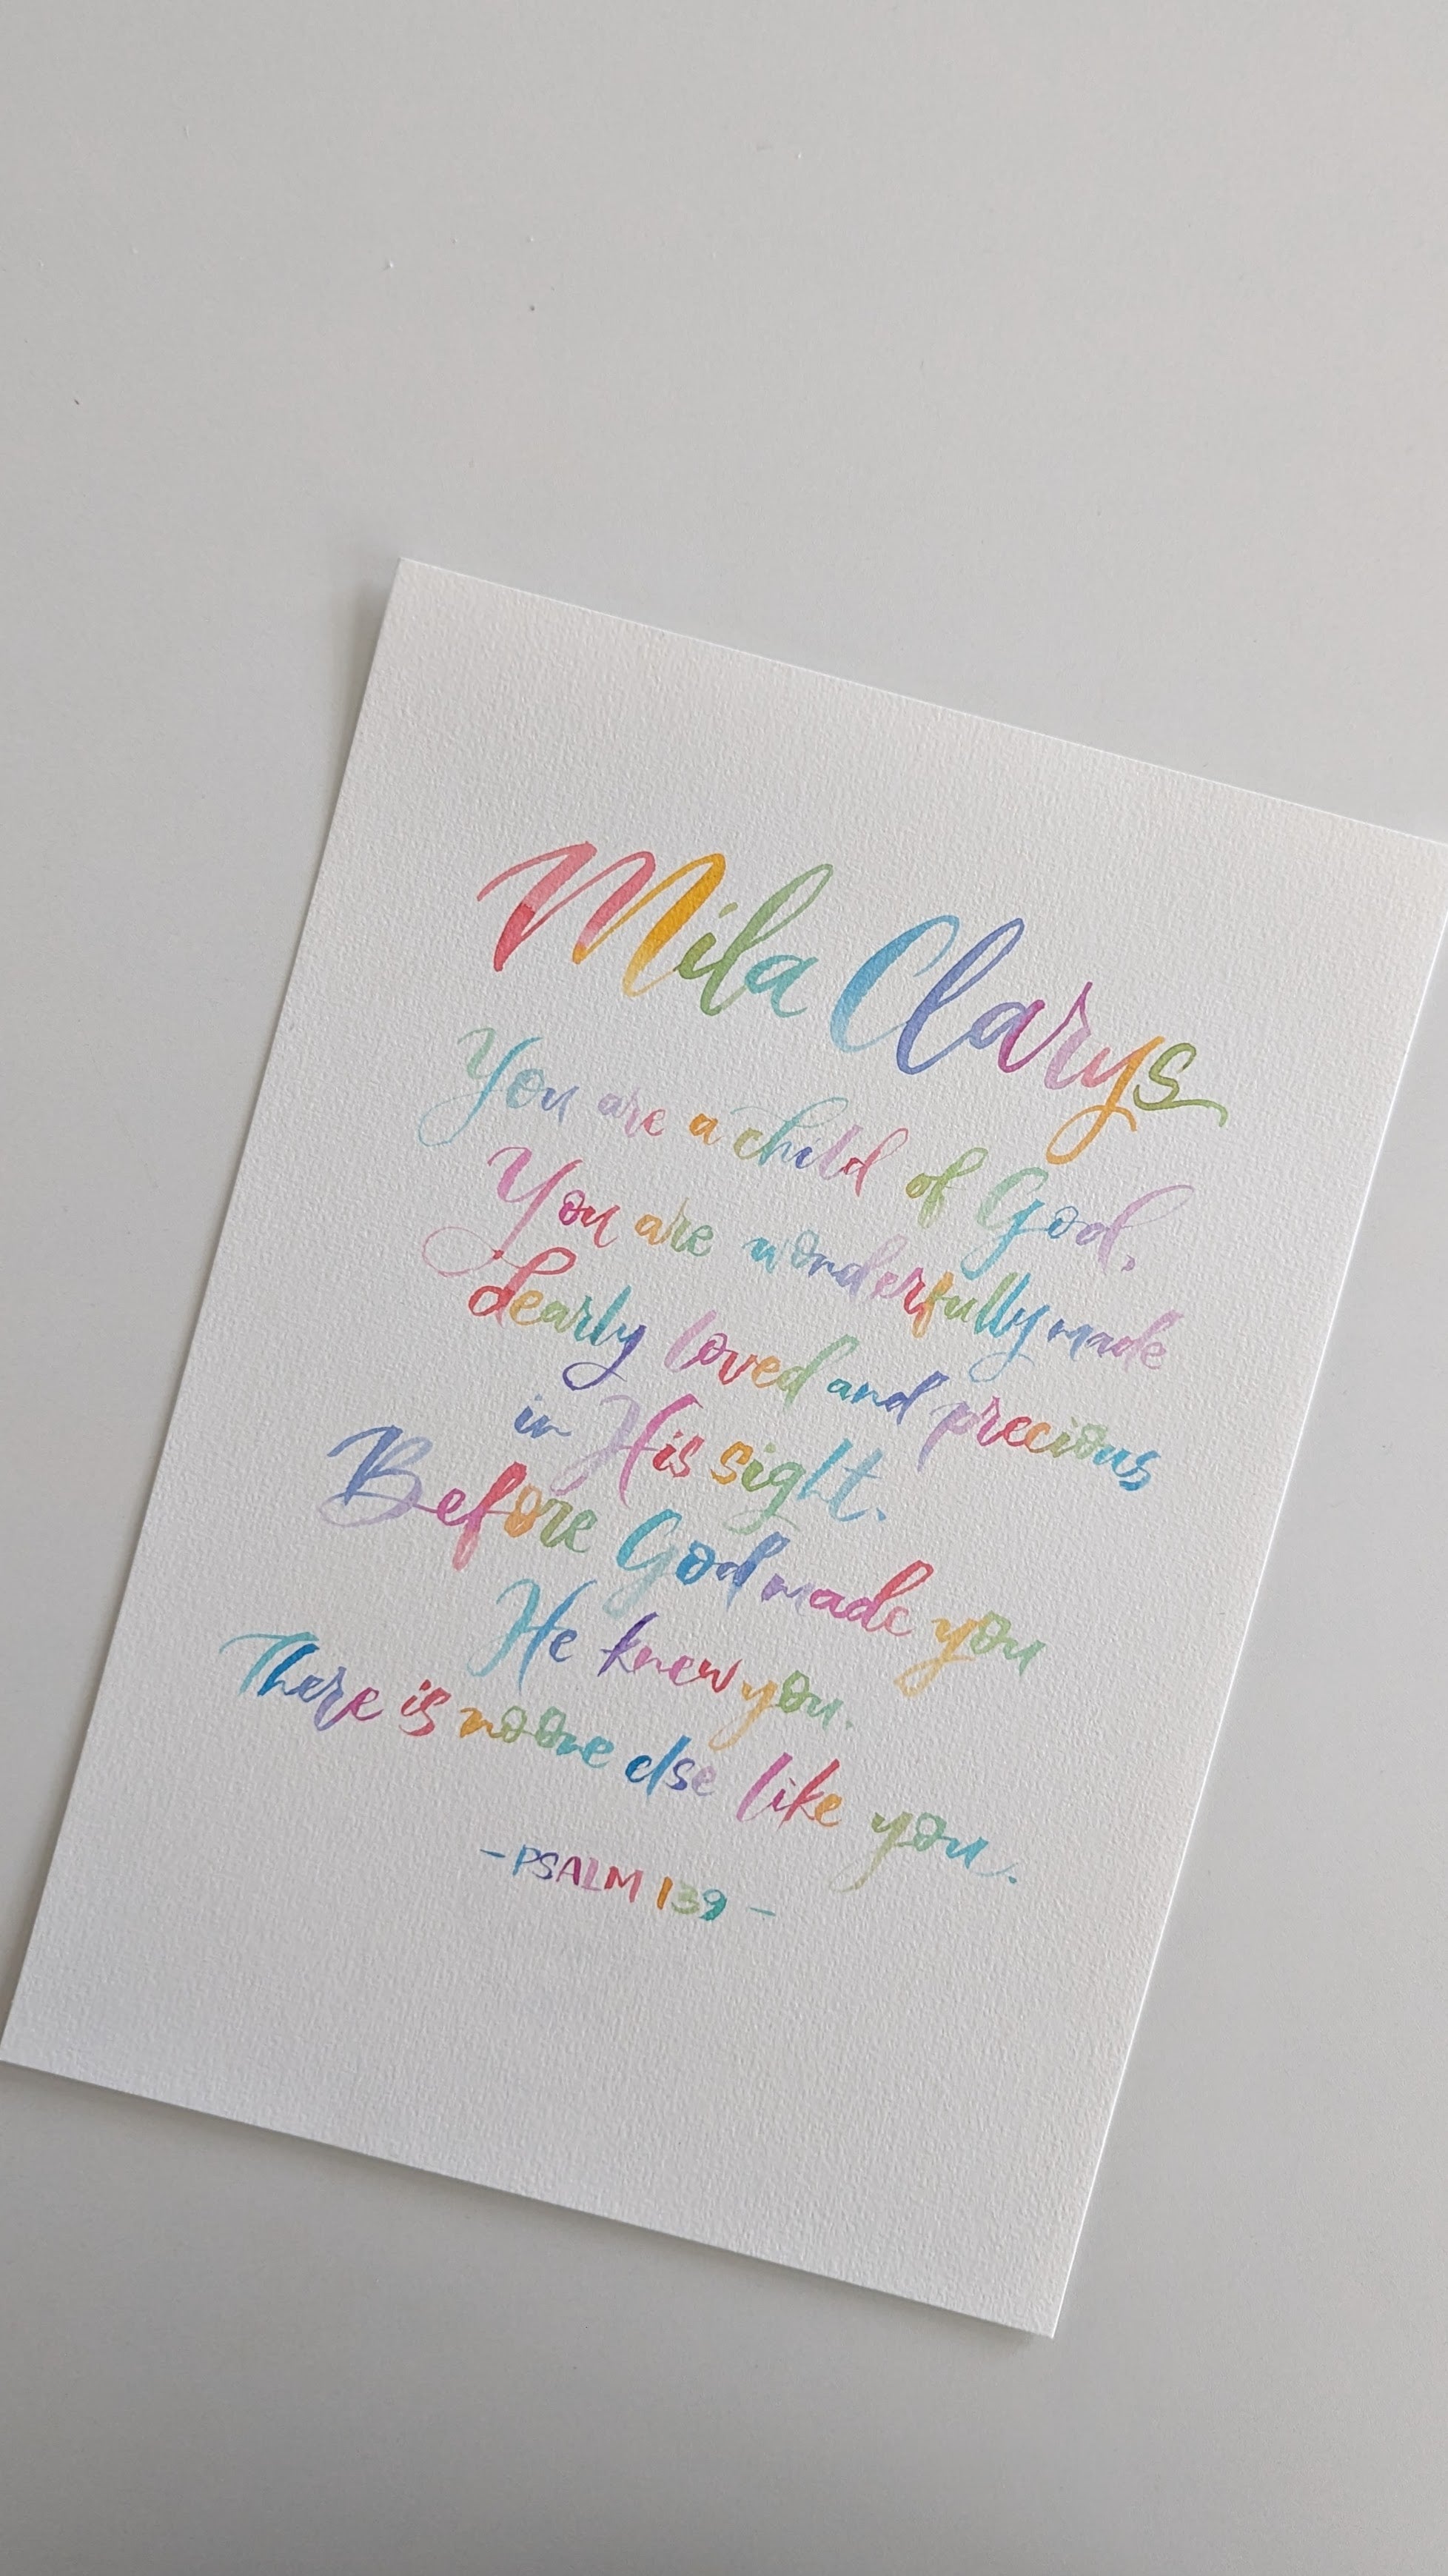 Mila Clarys
You are a child of God,
You are wonderfully made
dearly loved and precious
in His sight.
Before God made you
He knew you.
There is no one else like you.
- PSALM 139 -